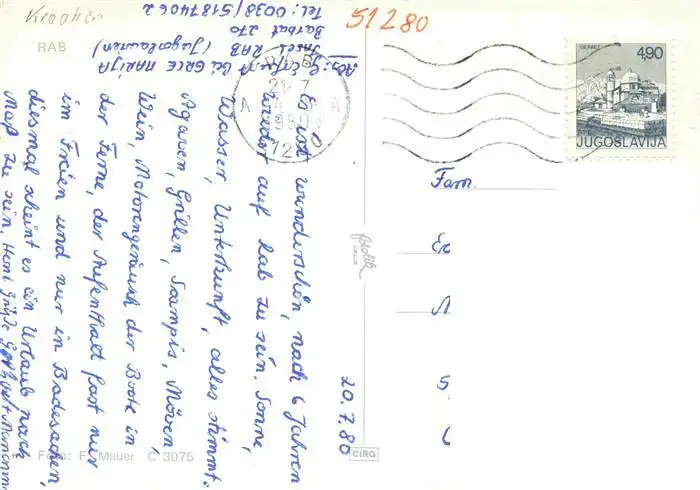 Kroatien
RAB
51280
Abs: G. Erfurt bei GRCE MARIJA
Insel RAB (Jugoslawien)
Barbat 270
Tel: 0038/5187406 2
20.7.80
Es ist wunderschön, nach 6 Jahren
wieder auf Rab zu sein. Sonne,
Wasser, Unterkunft, alles stimmt.
Agaven, Grillen, Scampis, Möven,
Wein, Motorengeräusch der Boote in
der Ferne, der Aufenthalt fast nur
im Freien und nur in Badesachen,
diesmal scheint es ein Urlaub nach
Maß zu sein. Herzl. Grüße
RAB
21.7
1980
A A
51280
BERNET
4,90
JUGOSLAVIJA
Fam.
fotolik
celje
CIRG
Foto: F. Mauer C 3075